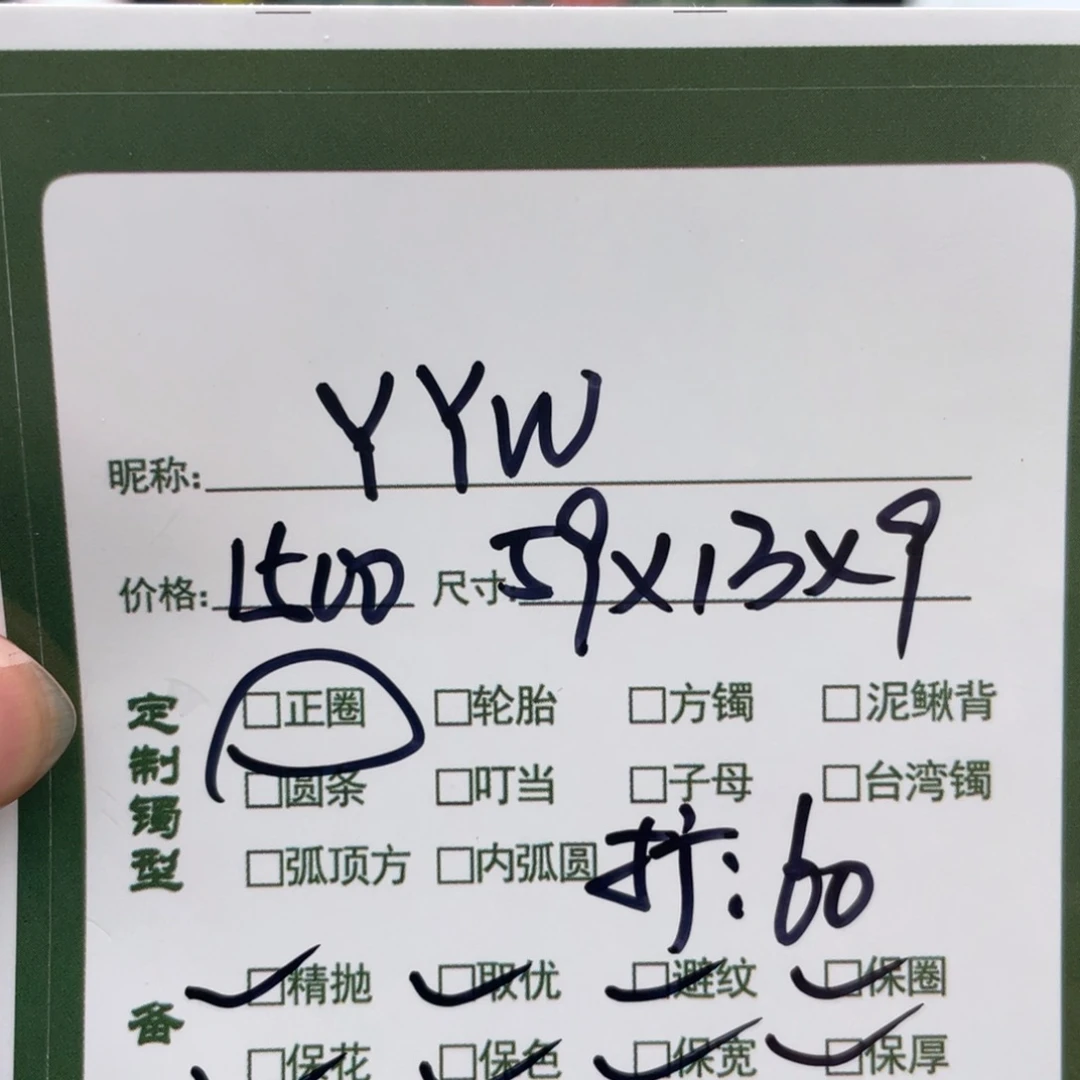 昵称: YYW
价格: 1500 尺寸: 59x13x9
定制镯型
□正圈 □轮胎 □方镯 □泥鳅背
□圆条 □叮当 □子母 □台湾镯
□弧顶方 □内弧圆 : 60
备
□精抛 □取优 □避纹 □保圈
□保花 □保色 □保宽 □保厚